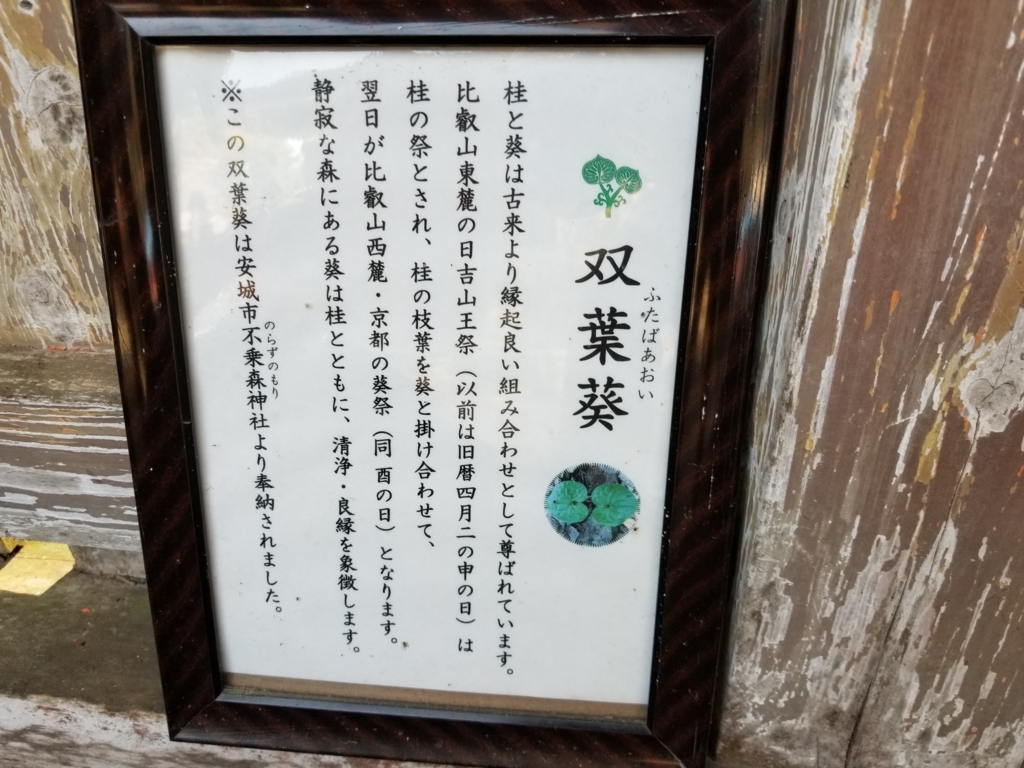 双葉葵
ふたばあおい
桂と葵は古来より縁起良い組み合わせとして尊ばれています。
比叡山東麓の日吉山王祭（以前は旧暦四月二の申の日）は
桂の祭とされ、桂の枝葉を葵と掛け合わせて、
翌日が比叡山西麓・京都の葵祭（同 酉の日）となります。
静寂な森にある葵は桂とともに、清浄・良縁を象徴します。
※この双葉葵は安城市不乗森神社より奉納されました。
のらずのもり